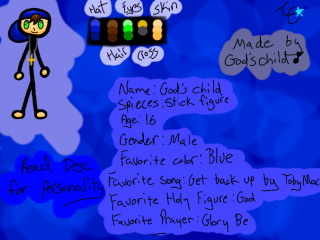 Hat Eyes Skin
Hair Cross
Made by
God's child
Name: God's child
Spieces: Stick figure
Age: 16
Gender: Male
Favorite color: Blue
Favorite Song: Get back up by TobyMac
Favorite Holy Figure: God
Favorite Prayer: Glory Be
Read Desc.
for Personality